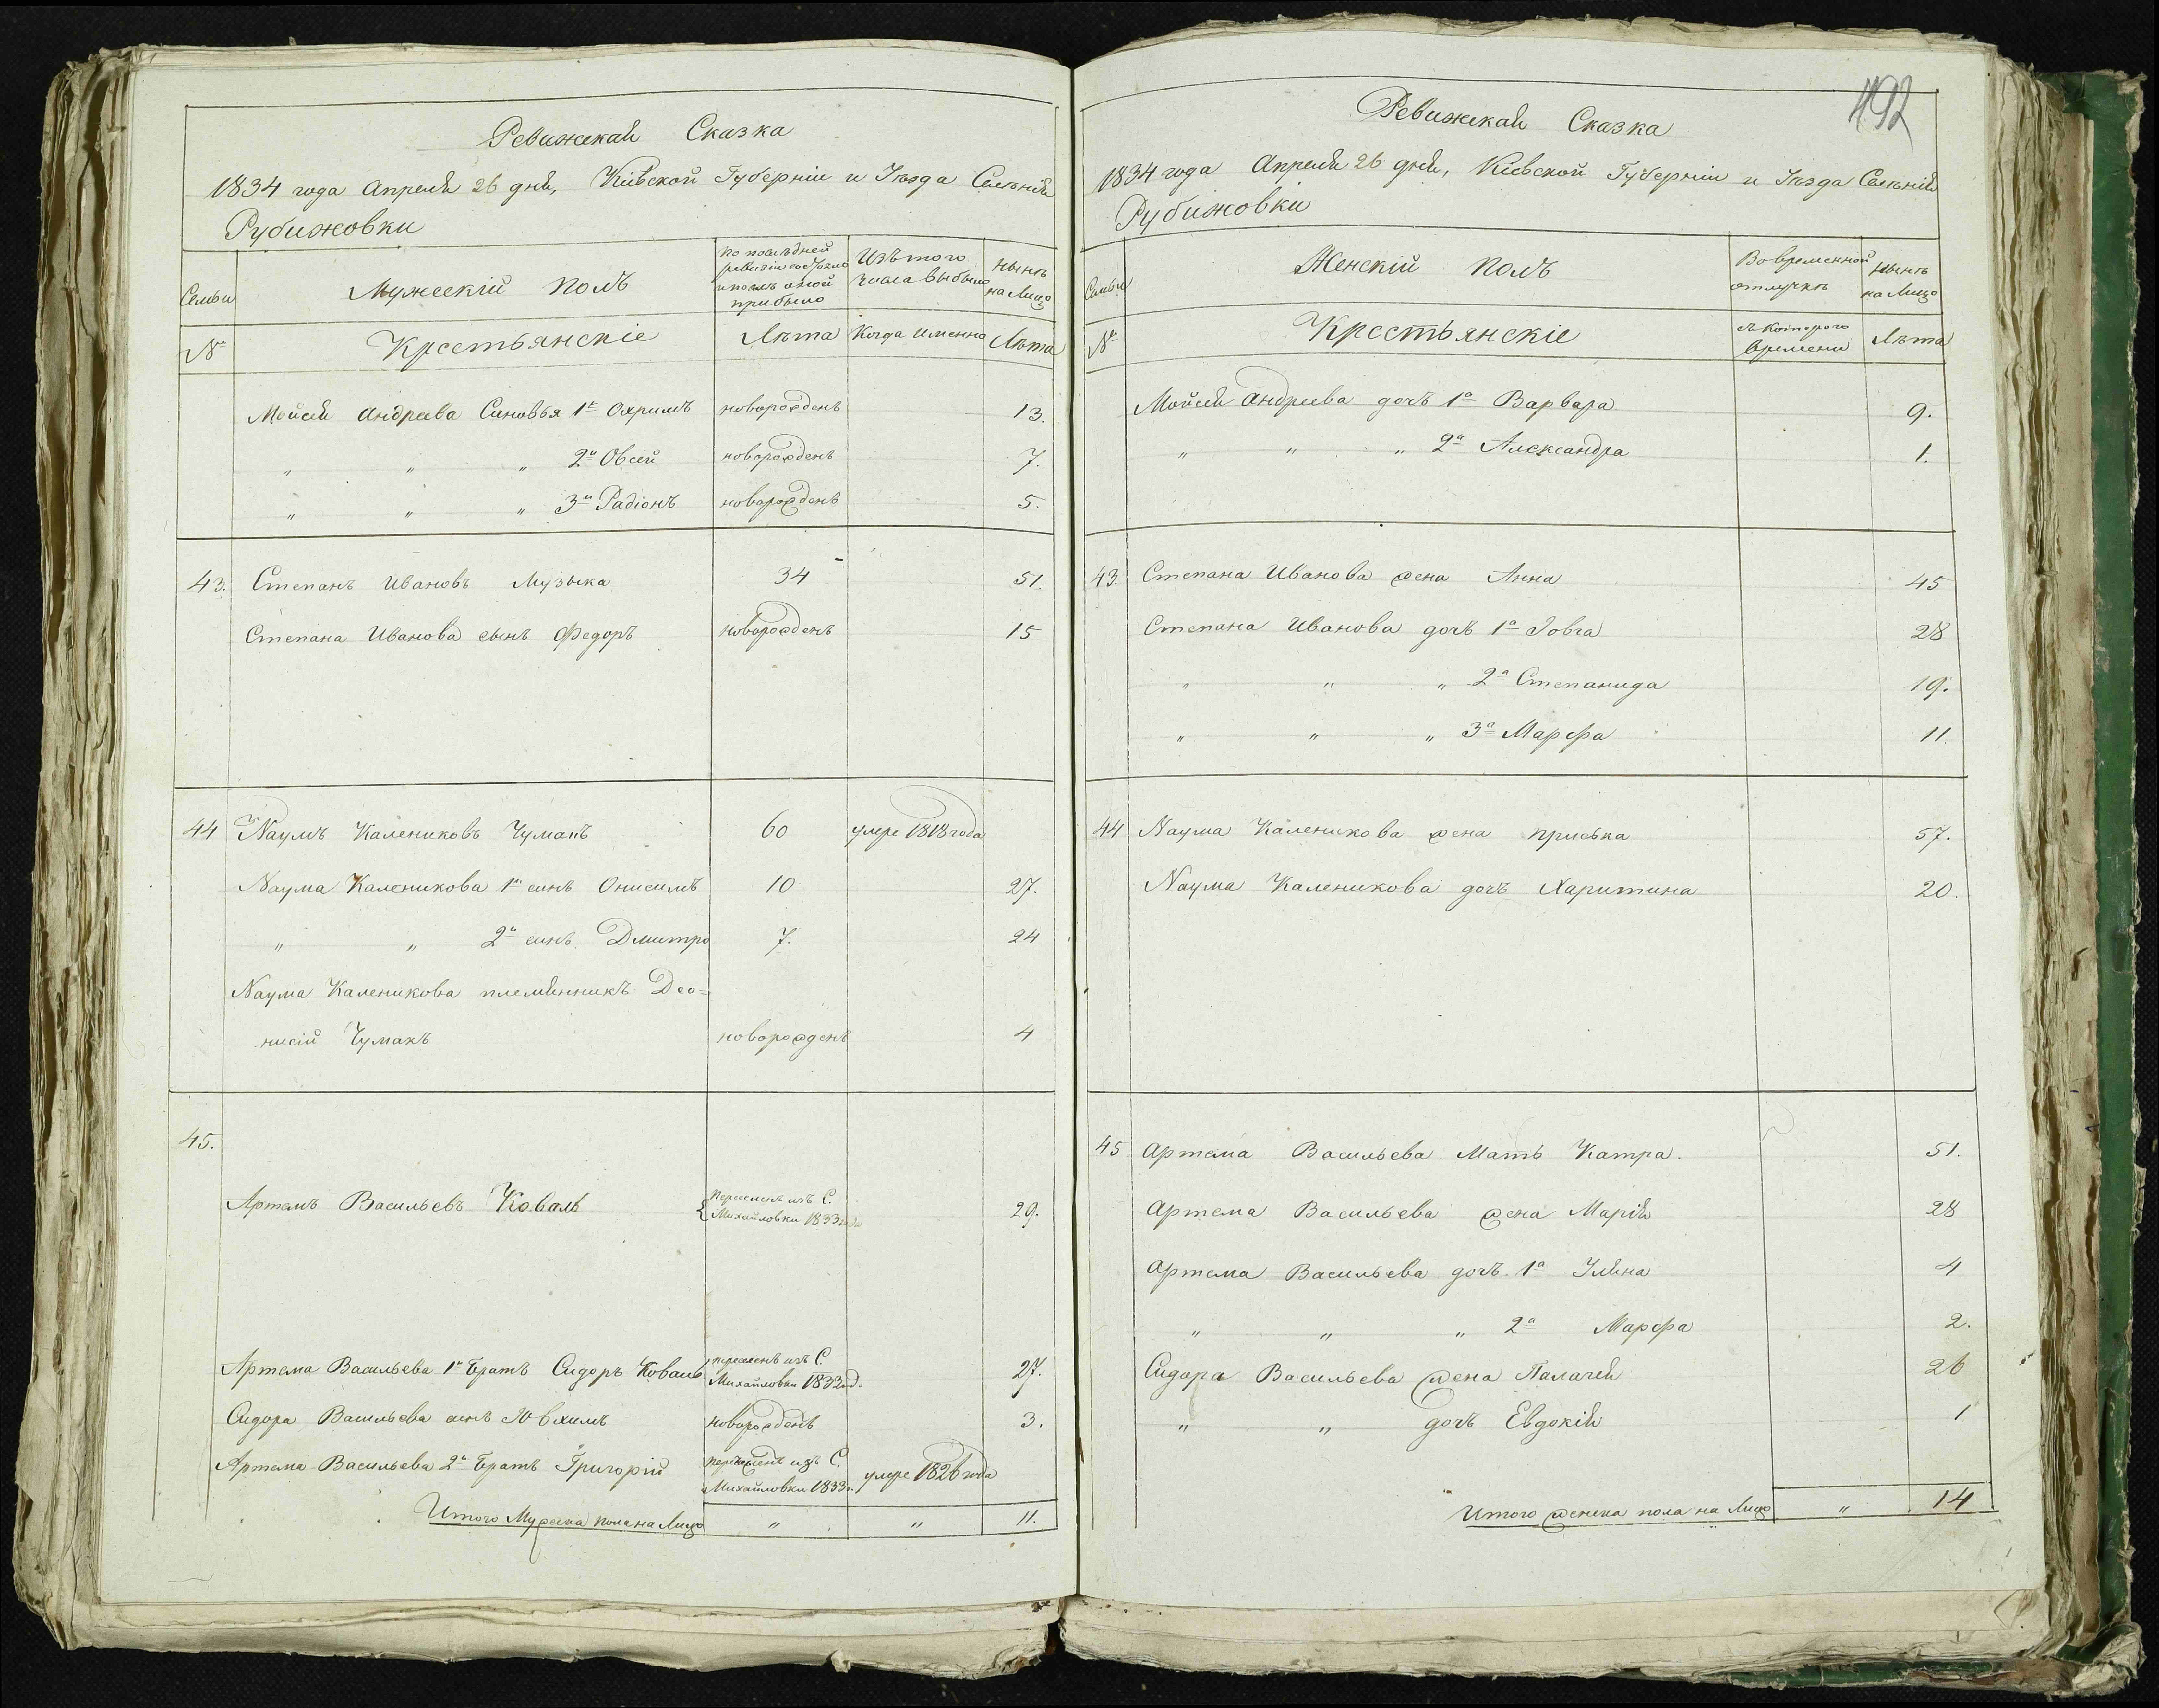 Ревижская Сказка
1834 года Апреля 26 дня, Кіевской Губерніи и Уезда Селенія
Рубижовки
Семьи
Мужескій полъ
по последней ревизіи состояло и после оной прибыло
Изъ того числа выбыло
ныне на Лицо
№
Крестьянскіе
Лета
Когда именно
Лета
Мойсея Андреева Синовья 1й Охримъ новорожденъ 13.
" " " 2й Овсей новорожденъ 7.
" " " 3й Радіонъ новорожденъ 5.
43. Степанъ Ивановъ Музыка 34 51.
Степана Иванова сынъ Федоръ новорожденъ 15
44 Наумъ Калениковъ Чумакъ 60 умре 1818 года
Наума Каленикова 1й синъ Онисимъ 10 27.
" " 2й синъ Дмитро 7. 24
Наума Каленикова племянникъ Део=
нисій Чумакъ новорожденъ 4
45.
Артемъ Васильевъ Коваль переселенъ изъ С. Михайловки 1833 года 29.
Артема Васильева 1й братъ Сидоръ Коваль переселенъ изъ С. Михайловки 1833 год. 27.
Сидора Васильева синъЮвхимъ новорожденъ 3.
Артема Васильева 2й братъ Григорій изъ С. Михайловки 1833 г. умре 1826 года
Итого Мужеска пола на Лицо " " 11.
492
Ревижская Сказка
1834 года Апреля 26 дня, Кіевской Губерніи и Уезда Селенія
Рубижовки
Семьи
Женскій полъ
Во временной отлучке
ныне на Лицо
№
Крестьянскіе
съ которого времени
Лета
Мойсея Андреева дочъ 1а Варвара 9.
" " " 2а Александра 1.
43. Степана Иванова жена Анна 45
Степана Иванова дочъ 1а Говга 28
" " " 2а Степанида 19.
" " " 3а Марфа 11.
44 Наума Каленикова жена Приська 57.
Наума Каленикова дочъ Харитина 20.
45 Артема Васильева Мать Катра. 51.
Артема Васильева жена Марія 28
Артема Васильева дочъ 1а Уляна 4
" " " 2а Марфа 2.
Сидора Васильева жена Палагея 26
" " дочъ Евдокія 1
Итого женска пола на Лицо " 14